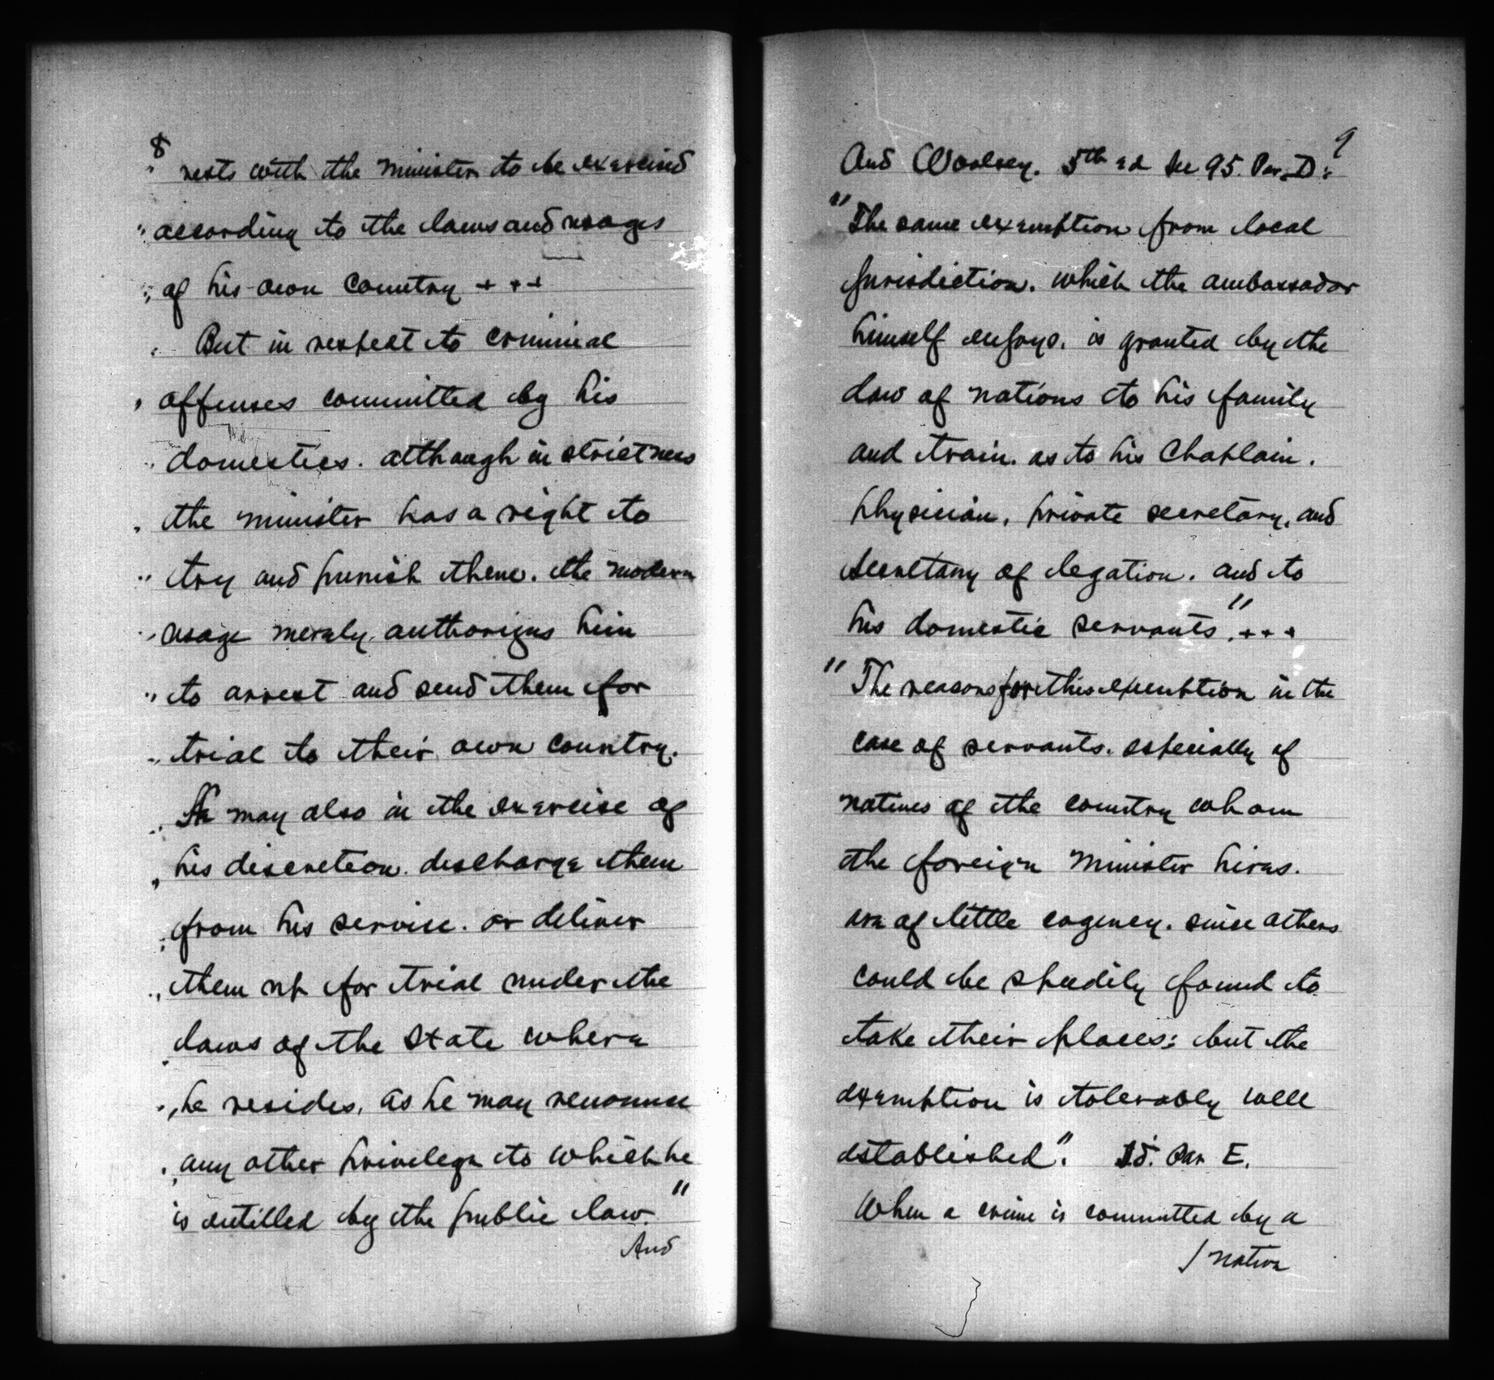 8
" rests with the minister to be exercised
" according to the laws and usages
" of his own country + + +
" But in respect to criminal
" offenses committed by his
" domestics. although in strictness
" the minister has a right to
" try and punish them. the modern
" usage merely authorizes him
" to arrest and send them for
" trial to their own country.
" He may also in the exercise of
" his discretion. discharge them
" from his service. or deliver
" them up for trial under the
" laws of the State where
" he resides, as he may renounce
" any other privilege to which he
is entitled by the public law."
And
9
And Woolsey. 5th ed Sec 95. Par. D:
"The same exemption from local
jurisdiction. which the ambassador
himself enjoys. is granted by the
law of nations to his family
and train. as to his Chaplain.
physician, private secretary, and
secretary of legation. and to
his domestic servants". + + +
"The reasons for this exemption in the
case of servants. especially of
natives of the country whom
the foreign Minister hires.
are of little cogency. since others
could be speedily found to
take their places: but the
exemption is tolerably well
established". Id. Par E.
When a crime is committed by a
/ native